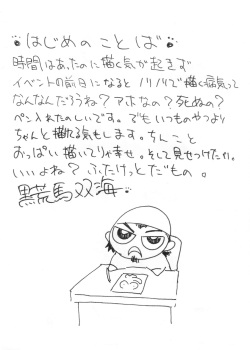 はじめのことば
時間はあったのに描く気が起きず
イベントの前日になるとノリノリで描く病気って
なんなんだろうね？アホなの？死ぬの？
ペン入れたのしいです。でもいつものやつより
ちゃんと描てる気もします。ちんこと
おっぱい描いてりゃ幸せ。そして見せつけたい。
いいよね？ふたけっとだもの。
黒荒馬双海